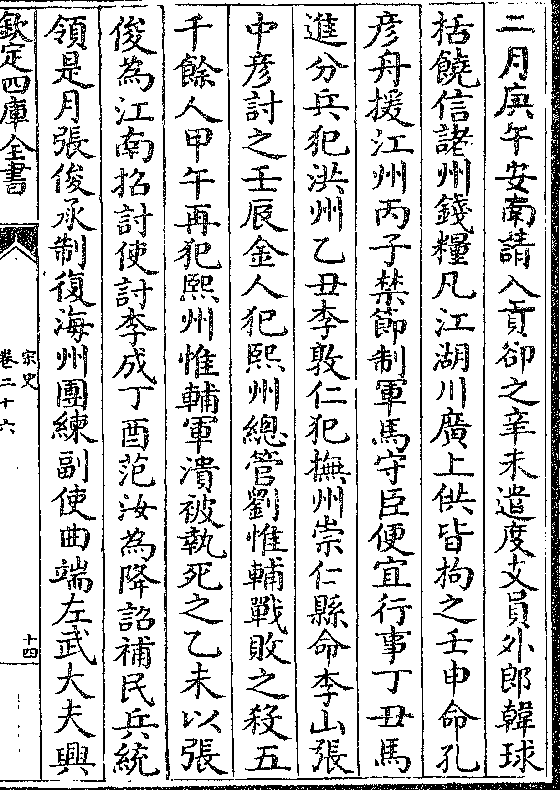 二月庚午安南請入貢卻之辛未遣度支員外郎韓球
括饒信諸州錢糧凡江湖川廣上供皆拘之壬申命孔
彦舟援江州丙子禁節制軍馬守臣便宜行事丁丑馬
進分兵犯洪州乙丑李敦仁犯撫州崇仁縣命李山張
中彦討之壬辰金人犯熙州總管劉惟輔戰敗之殺五
千餘人甲午再犯熙州惟輔軍潰被執死之乙未以張
俊為江南招討使討李成丁酉范汝為降詔補民兵統
領是月張俊承制復海州團練副使曲端左武大夫興
欽定四庫全書
宋史
卷二十六
十四